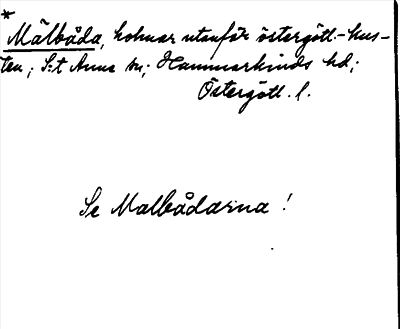 *
Mälbåda, holmar utanför östergötl.-kus-
ten; S:t Anna sn; Hammarkinds hd;
Östergötl. l.
Se Malbådarna!